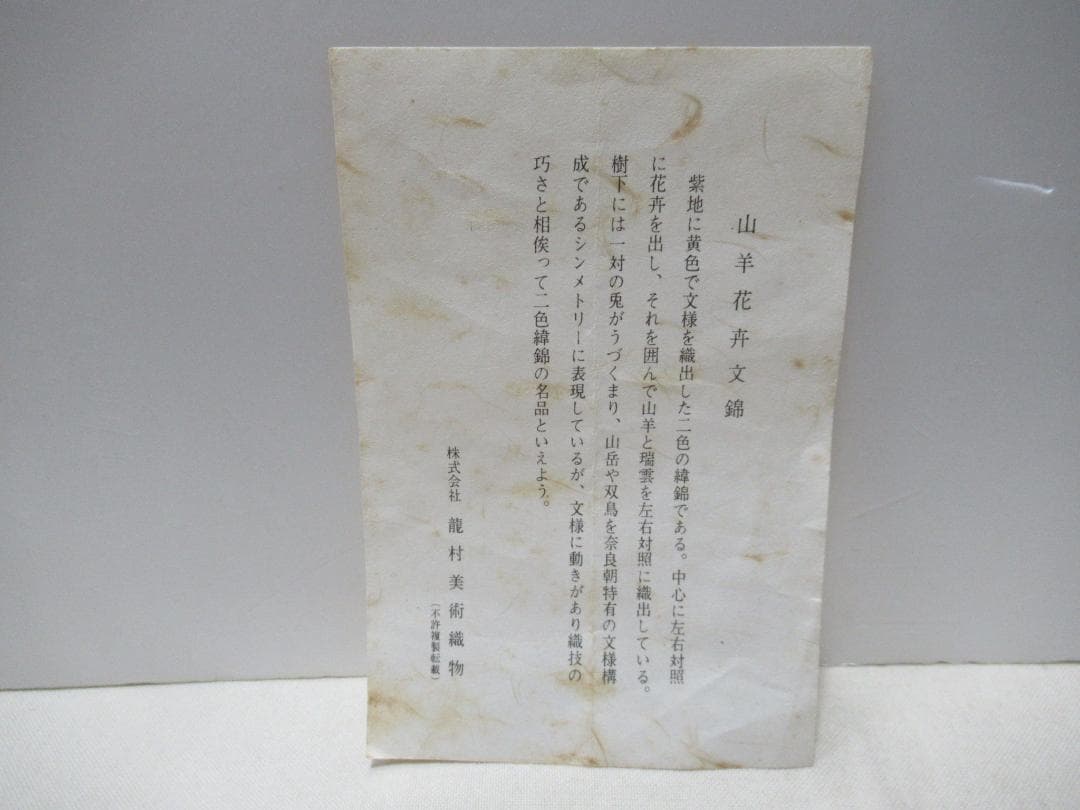 山羊花卉文錦
紫地に黄色で文様を織出した二色の緯錦である。中心に左右対照
に花卉を出し、それを囲んで山羊と瑞雲を左右対照に織出している。
樹下には一対の兎がうづくまり、山岳や双鳥を奈良朝特有の文様構
成であるシンメトリーに表現しているが、文様に動きがあり織技の
巧さと相俟って二色緯錦の名品といえよう。
株式会社 龍村美術織物
(不許複製転載)